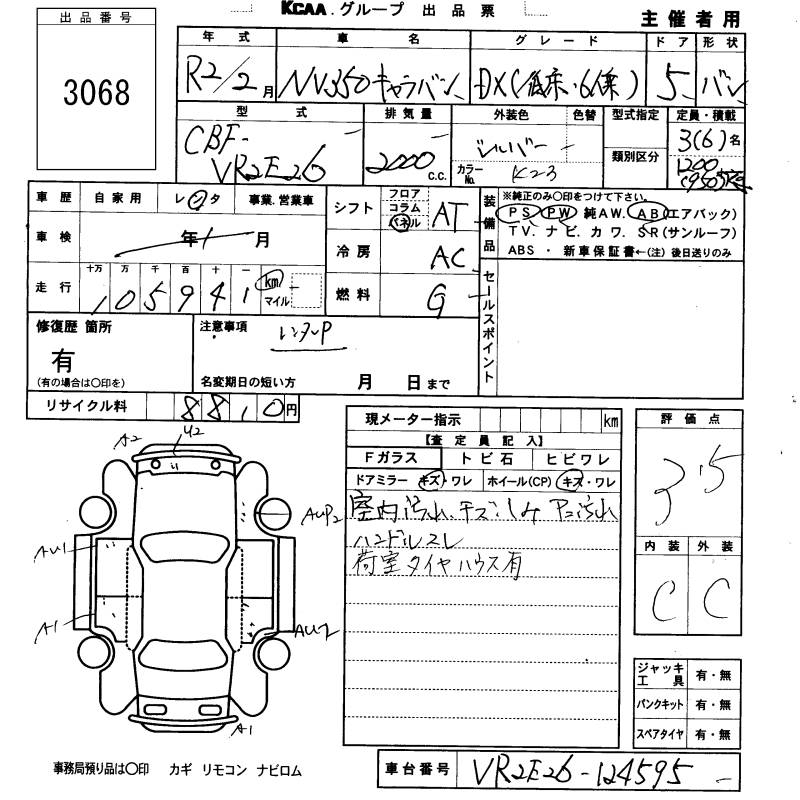 KCAA.グループ 出品票
主催者用
出品番号
3068
年式 車名 グレード ドア 形状
R2/2月 NV350キャラバン DX(低床・6人乗) 5 バン
型式 排気量 外装色 色替 型式指定 定員・積載
CBF-VR2E26 2000 C.C. シルバー カラーNo. K23 類別区分 3(6)名 1200
車歴 自家用 レンタ 事業.営業車
シフト フロア コラム パネル AT
装備品 ※純正のみ〇印をつけて下さい。
PS PW 純AW. AB(エアバック)
TV. ナビ. カワ. SR(サンルーフ)
ABS ・ 新車保証書←(注) 後日送りのみ
車検 年 月
冷房 AC
走行 十万 万 千 百 十 一
105941 km マイル
燃料 G
セールスポイント
修復歴 箇所
有
(有の場合は〇印を)
注意事項
レンタUP
名変期日の短い方 月 日まで
リサイクル料 8810円
現メーター指示 km
【査定員記入】
Fガラス トビ石 ヒビワレ
ドアミラー キズ・ワレ ホイール(CP) キズ・ワレ
室内汚れ、キズ、しみ 汚れ
ハンドルスレ
荷室タイヤハウス有
評価点
3.5
内装 外装
C C
ジャッキ工具 有・無
パンクキット 有・無
スペアタイヤ 有・無
A2 U2
AU1
A1
AU2
A1
事務局預り品は〇印 カギ リモコン ナビロム
車台番号 VR2E26-124595